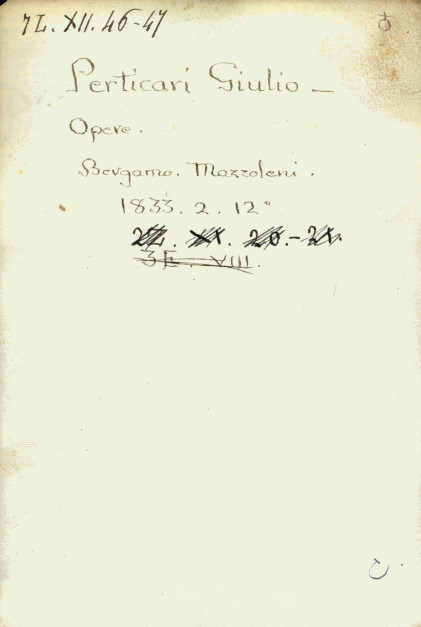 7L. XII. 46-47
Perticari Giulio –
Opere.
Bergamo. Mazzoleni.
1833. 2. 12°
3E. VIII.